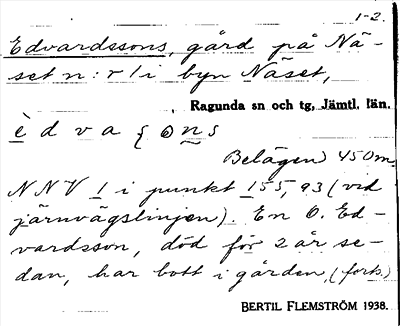 1-2.
Edvardssons, gård på Nä-
set n:r 1 i byn Näset,
Ragunda sn och tg, Jämtl. län.
Belägen 450 m
NNV 1 i punkt 155,93 (vid
järnvägslinjen). En O. Ed-
vardsson, död för 2 år se-
dan, har bott i gården, (forts.)
BERTIL FLEMSTRÖM 1938.